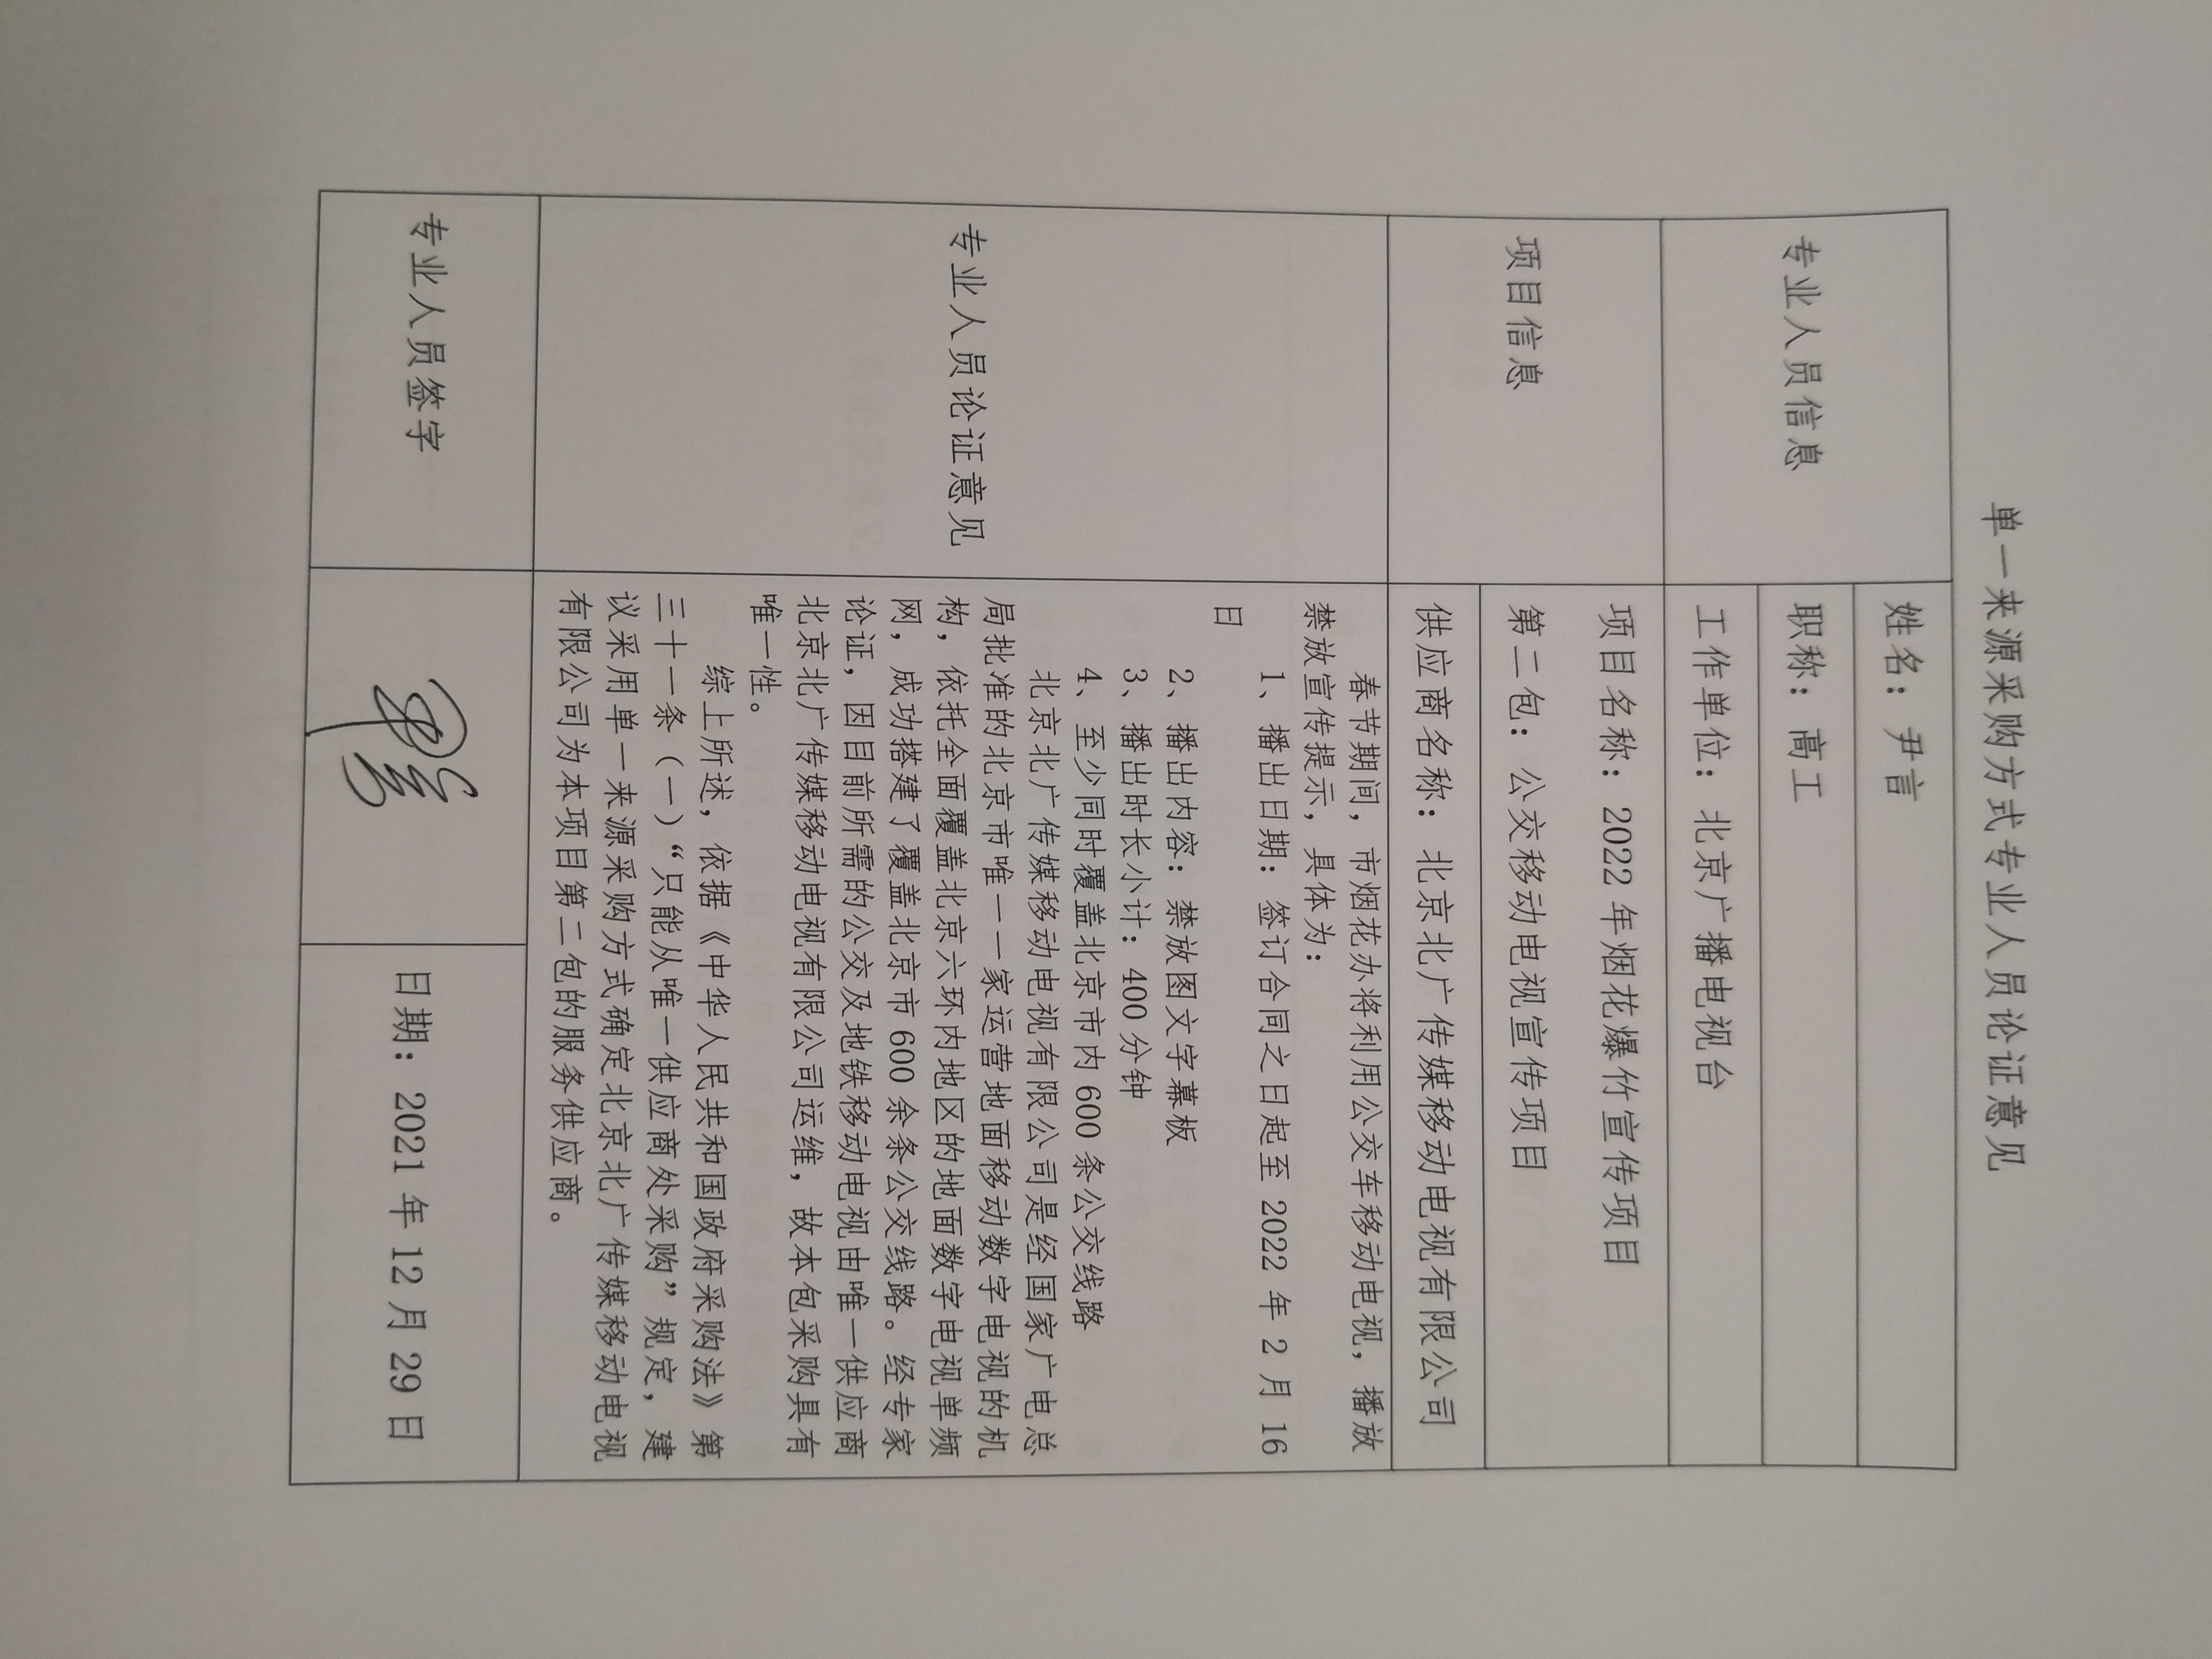 单一来源采购方式专业人员论证意见
专业人员信息
姓名：尹言
职称：高工
工作单位：北京广播电视台
项目信息
项目名称：2022 年烟花爆竹宣传项目
第二包：公交移动电视宣传项目
供应商名称：北京北广传媒移动电视有限公司
专业人员论证意见
春节期间，市烟花办将利用公交车移动电视，播放
禁放宣传提示，具体为：
1、播出日期：签订合同之日起至 2022 年 2 月 16
日
2、播出内容：禁放图文字幕板
3、播出时长小计：400 分钟
4、至少同时覆盖北京市内 600 条公交线路
北京北广传媒移动电视有限公司是经国家广电总
局批准的北京市唯一一家运营地面移动数字电视的机
构，依托全面覆盖北京六环内地区的地面数字电视单频
网，成功搭建了覆盖北京市 600 余条公交线路。经专家
论证，因目前所需的公交及地铁移动电视由唯一供应商
北京北广传媒移动电视有限公司运维，故本包采购具有
唯一性。
综上所述，依据《中华人民共和国政府采购法》第
三十一条（一）“只能从唯一供应商处采购”规定，建
议采用单一来源采购方式确定北京北广传媒移动电视
有限公司为本项目第二包的服务供应商。
专业人员签字
日期：2021 年 12 月 29 日